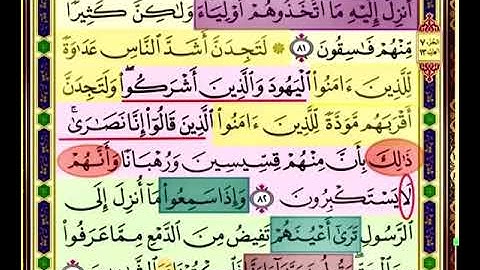 أُنزِلَ إِلَيْهِ مَا ٱتَّخَذُوهُمْ أَوْلِيَآءَ وَلَٰكِنَّ كَثِيرًا
مِّنْهُمْ فَٰسِقُونَ ٨١ ۞ لَتَجِدَنَّ أَشَدَّ ٱلنَّاسِ عَدَٰوَةً
لِّلَّذِينَ ءَامَنُوا۟ ٱلْيَهُودَ وَٱلَّذِينَ أَشْرَكُوا۟ ۖ وَلَتَجِدَنَّ
أَقْرَبَهُم مَّوَدَّةً لِّلَّذِينَ ءَامَنُوا۟ ٱلَّذِينَ قَالُوٓا۟ إِنَّا نَصَٰرَىٰ ۚ
ذَٰلِكَ بِأَنَّ مِنْهُمْ قِسِّيسِينَ وَرُهْبَانًا وَأَنَّهُمْ
لَا يَسْتَكْبِرُونَ ٨٢ وَإِذَا سَمِعُوا۟ مَآ أُنزِلَ إِلَى
ٱلرَّسُولِ تَرَىٰٓ أَعْيُنَهُمْ تَفِيضُ مِنَ ٱلدَّمْعِ مِمَّا عَرَفُوا۟